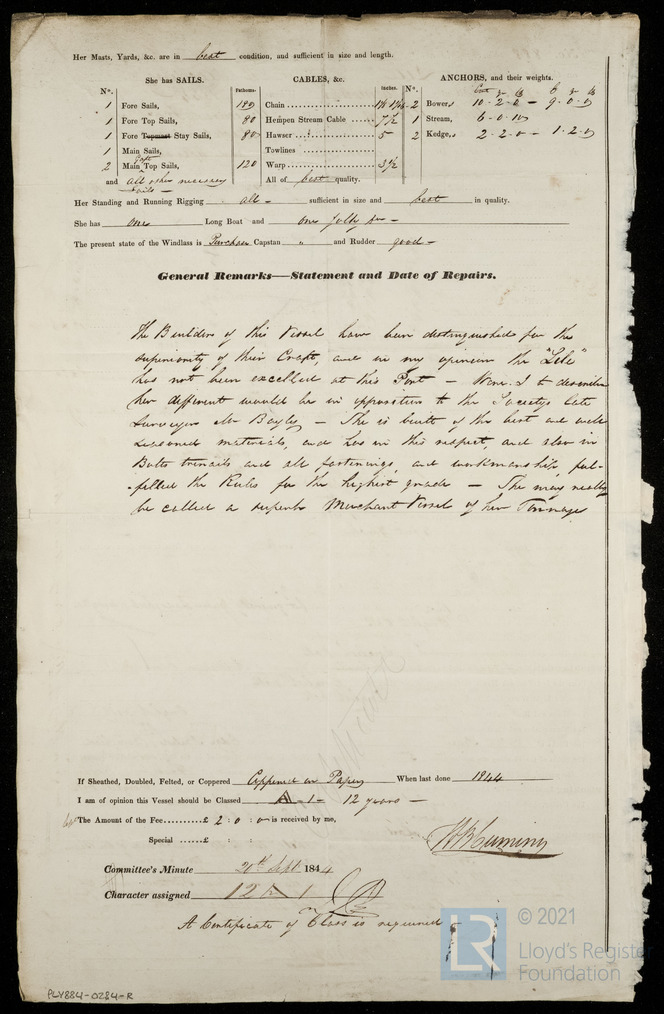 Her Masts, Yards, &c. are in best condition, and sufficient in size and length.
She has SAILS.
CABLES, &c.
ANCHORS, and their weights.
N°.
Fathoms.
Inches.
N°.
1 Fore Sails,
Chain
2 Bowers, 10-2-0 - 9-0-0
1 Fore Top Sails, 80
Hempen Stream Cable 7½
1 Stream, 6-0-10
1 Fore Topmast Stay Sails, 80
Hawser 5
2 Kedge, 2-2-0 - 1-2-0
1 Main Sails,
Towlines
2 Main Gaff Top Sails, 120
Warp 3½
and all other necessary sails
All of best quality.
Her Standing and Running Rigging all - sufficient in size and best in quality.
She has one Long Boat and one Jolly Do -
The present state of the Windlass is Purchase Capstan " and Rudder good -
General Remarks—Statement and Date of Repairs.
The Builders of this Vessel have been distinguished for the
superiority of their Craft, and in my opinion the "Lele"
has not been excelled at this Port - Were I to describe
her different would be in opposition to the Society's late
Surveyor Mr Bayley - She is built of the best and well
seasoned materials, and has in this respect, and also in
Bolts trenails and all fastenings, and workmanship, ful-
-filled the Rules for the highest grade - She may really
be called a superb Merchant Vessel of her Tonnage
If Sheathed, Doubled, Felted, or Coppered Coppered on Paper When last done 1844
I am of opinion this Vessel should be Classed A-1- 12 years -
The Amount of the Fee........£ 2 : 0 : 0 is received by me,
Special ......£ : :
W B Cuming
Committee's Minute 20th Sept. 1844
Character assigned 12 A 1
A Certificate of Class is required
PLY884-0284-R
LR
© 2021
Lloyd's Register
Foundation